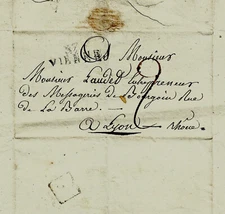 Monsieur
VIENNE
Monsieur Laudet Entrepreneur
des Messageries de Bourgoin Rue
de La Barre. —
a Lyon — Rhône.
2